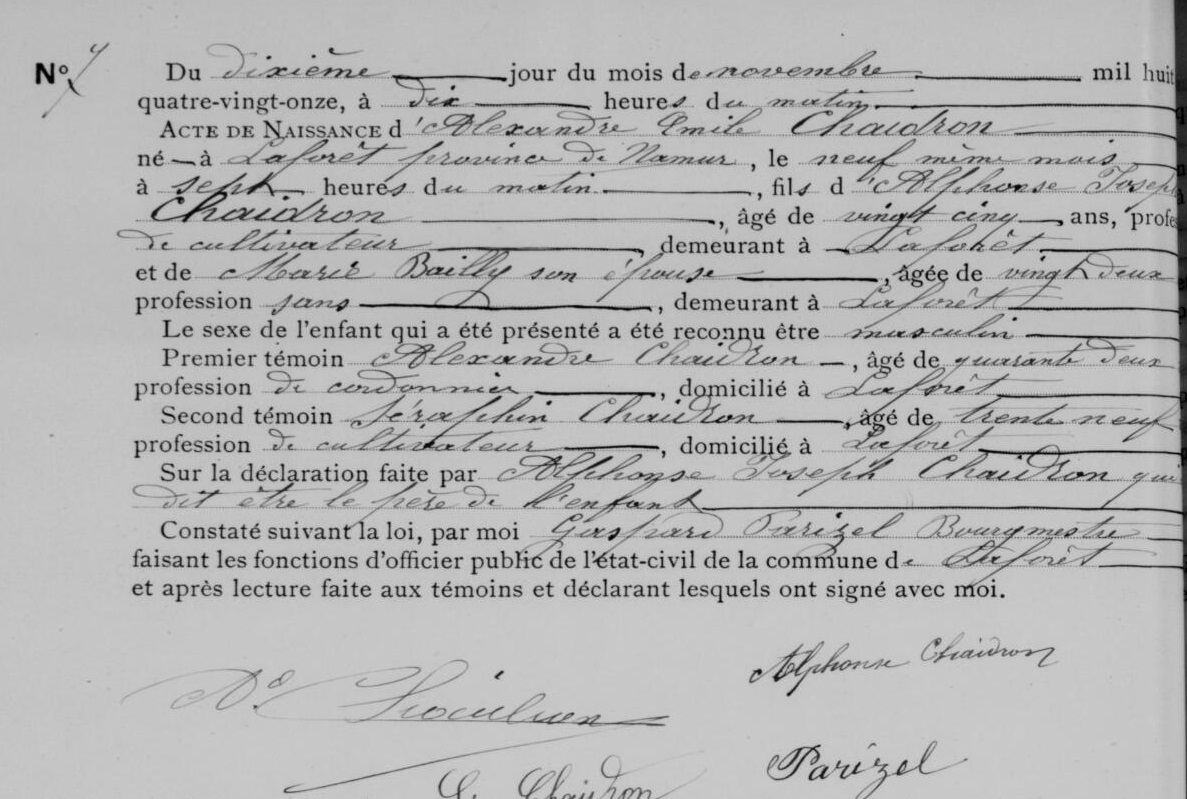 Nº 7
Du dixième jour du mois de novembre mil huit
quatre-vingt-onze, à dix heures du matin.
ACTE DE NAISSANCE d'Alexandre Emile Chaidron
né à Laforêt province de Namur, le neuf même mois
à sept heures du matin, fils d'Alphonse Joseph
Chaidron, âgé de vingt cinq ans, profes
de cultivateur, demeurant à Laforêt
et de Marie Bailly son épouse, âgée de vingt deux
profession sans, demeurant à Laforêt
Le sexe de l'enfant qui a été présenté a été reconnu être masculin
Premier témoin Alexandre Chaidron, âgé de quarante deux
profession de cordonnier, domicilié à Laforêt
Second témoin Séraphin Chaidron, âgé de trente neuf
profession de cultivateur, domicilié à Laforêt
Sur la déclaration faite par Alphonse Joseph Chaidron qui
dit être le père de l'enfant
Constaté suivant la loi, par moi Gaspard Parizel Bourgmestre
faisant les fonctions d'officier public de l'état-civil de la commune de Laforêt
et après lecture faite aux témoins et déclarant lesquels ont signé avec moi.
Alphonse Chaidron
Parizel
Chaidron